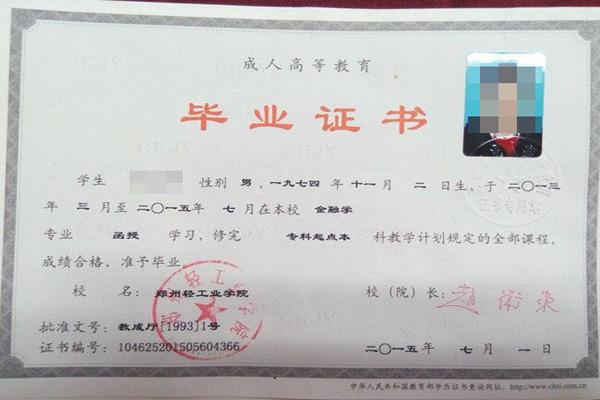 成人高等教育
毕业证书
学生 性别 男，一九七四年 十一月 二 日生，于 二〇一三
年 三 月至 二〇一五年 七 月在本校 金融学
专业 函授 学习，修完 专科起点本 科教学计划规定的全部课程，
成绩合格，准予毕业。
校 名：郑州轻工业学院 校（院）长：赵卫东
批准文号：教成厅[1993]1号
证书编号：104625201505604366 二〇一五年 七月 一日
中华人民共和国教育部学历证书查询网址：http://www.chsi.com.cn